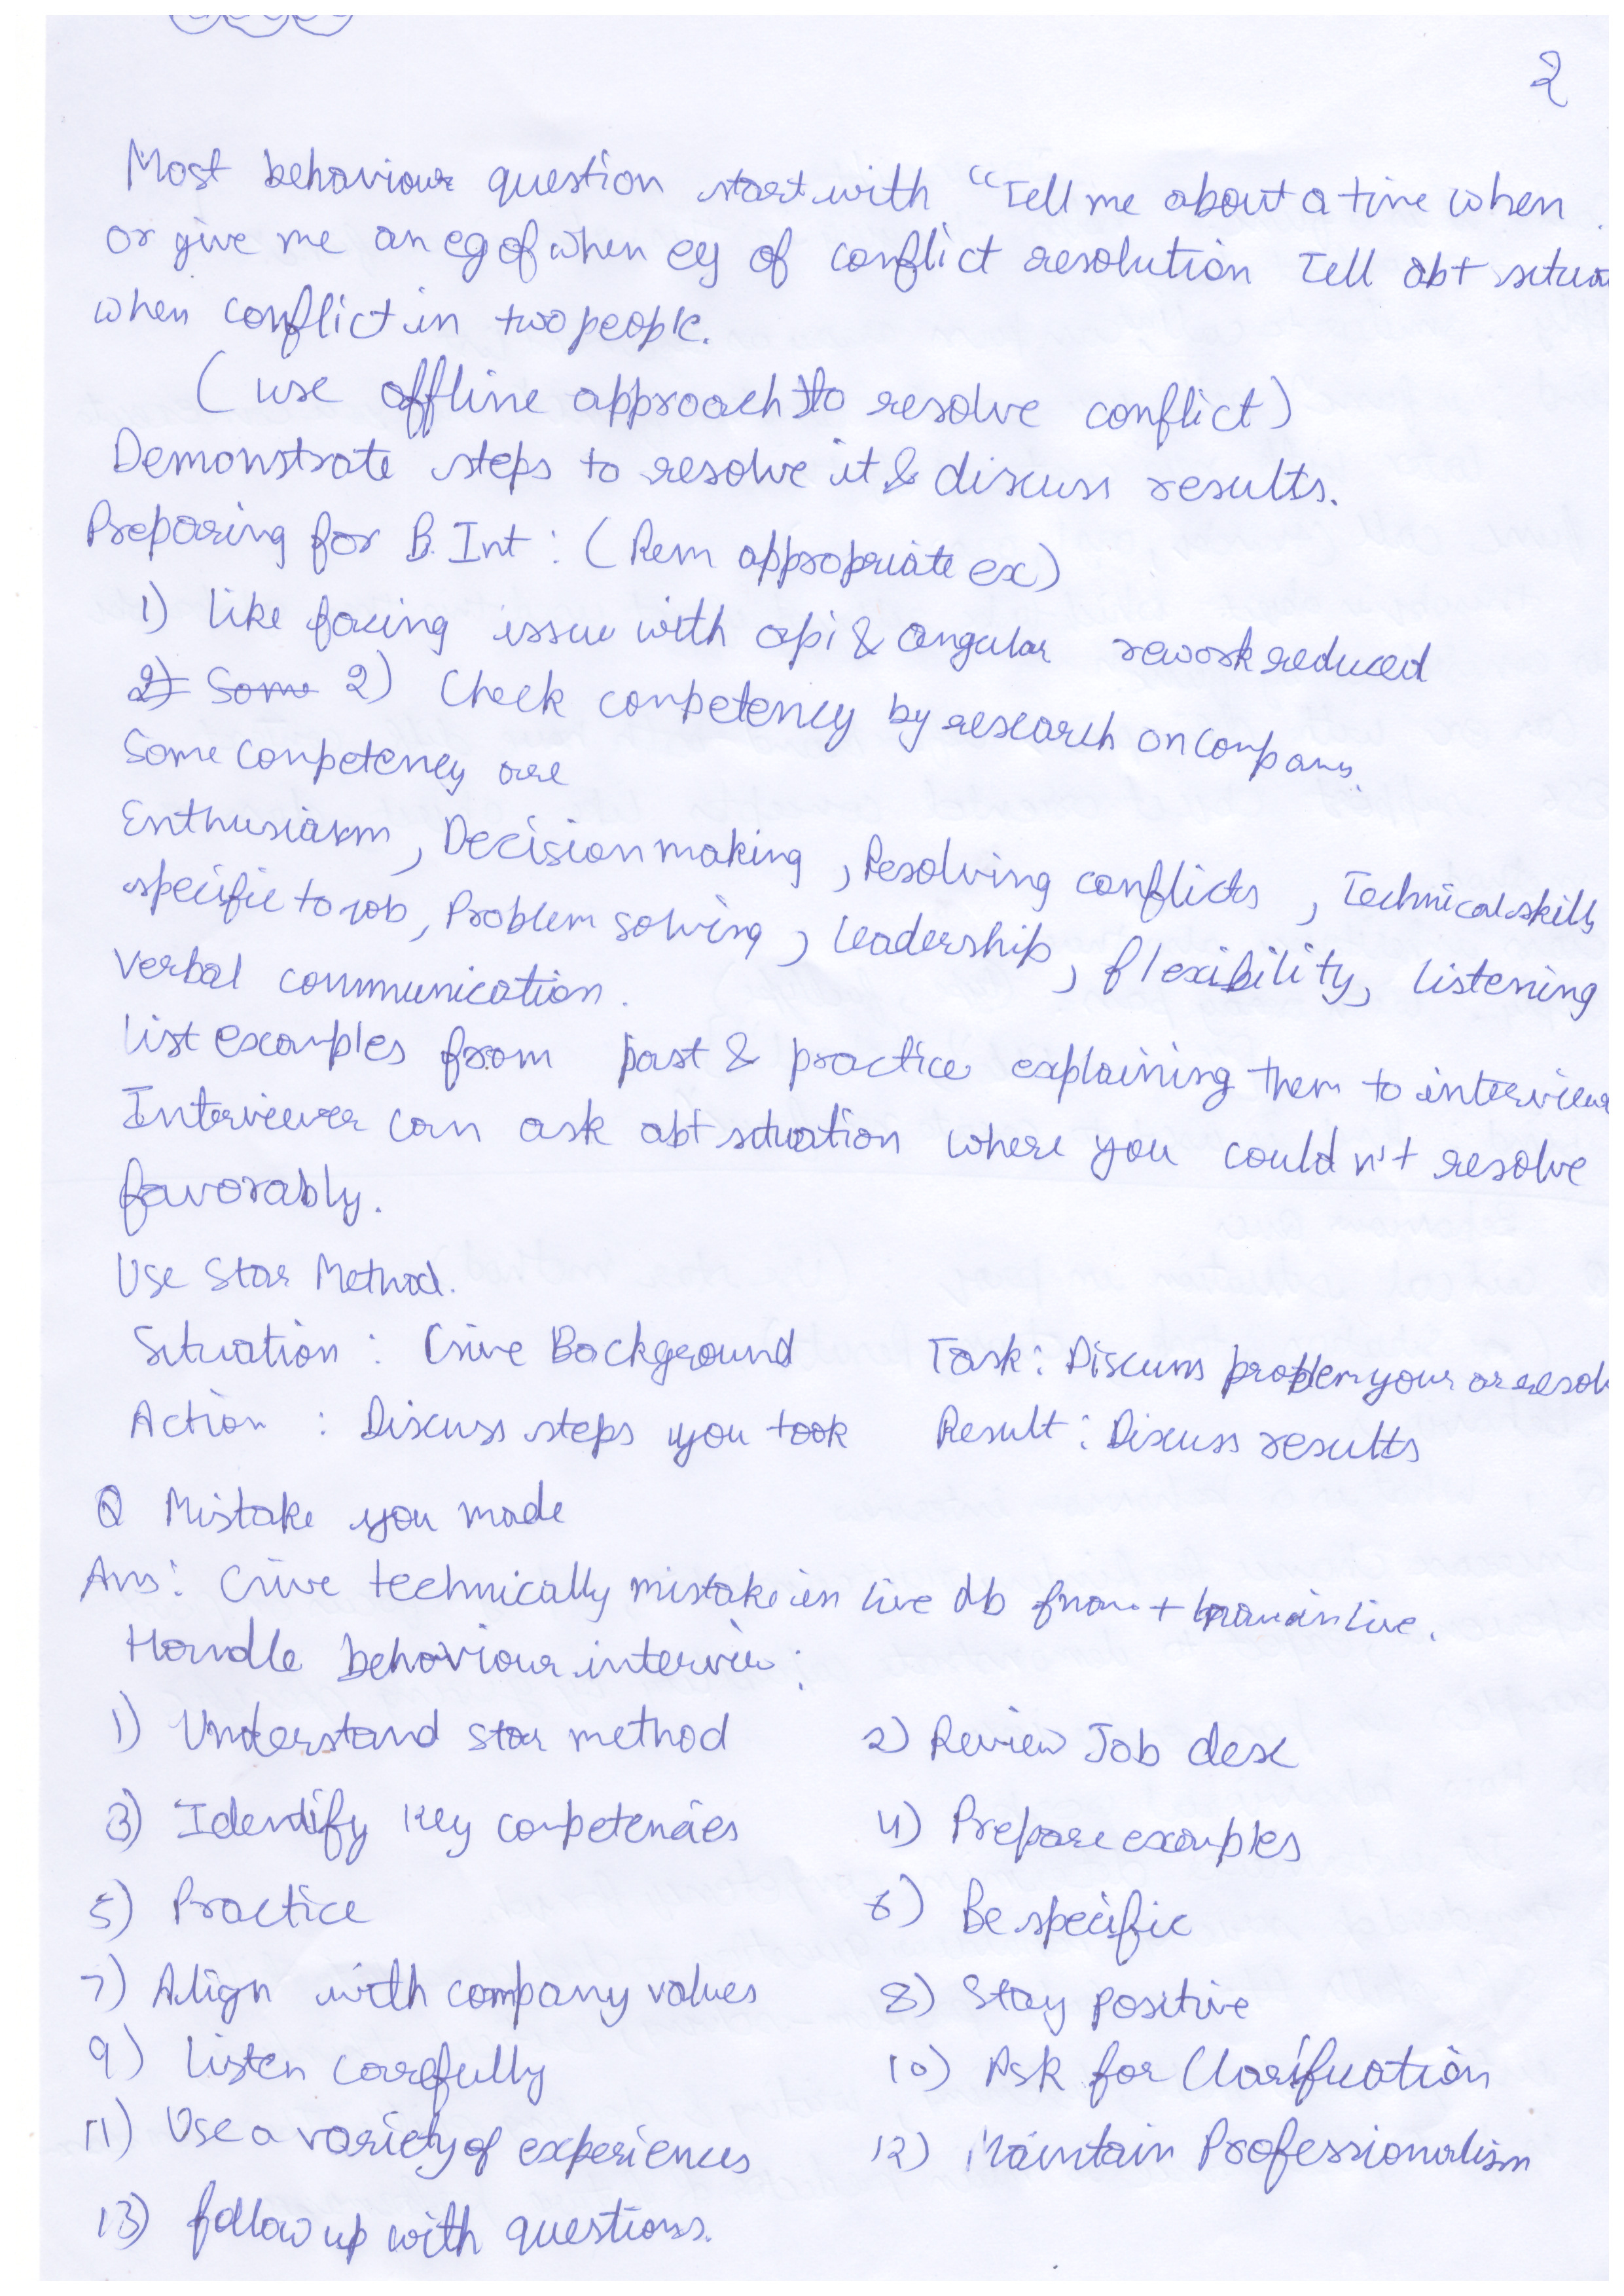 2
Most behaviour question start with "Tell me about a time when
or give me an eg of when eg of conflict resolution Tell abt
when conflict in two people.
(use offline approach to resolve conflict)
Demonstrate steps to resolve it & discuss results.
Preparing for B. Int : (Rem appropriate ex)
1) like facing issue with api & angular rework reduced
2) Some 2) Check competency by research on company.
Some competency are
Enthusiasm, Decision making, Resolving conflicts, Technical skills
specific to job, Problem solving, leadership, flexibility, listening
Verbal communication.
List examples from past & practice explaining them to
Interviewer can ask abt situation where you couldn't resolve
favorably.
Use Star Method.
Situation : Give Background Task : Discuss problem your or
Action : Discuss steps you took Result : Discuss results
Q Mistake you made
Ans: Give technically mistake in live db +
Handle behaviour interview :
1) Understand star method 2) Review Job desc
3) Identify key competencies 4) Prepare examples
5) Practice 6) Be specific
7) Align with company values 8) Stay positive
9) Listen carefully 10) Ask for Clarification
11) Use a variety of experiences 12) Maintain Professionalism
13) follow up with questions.